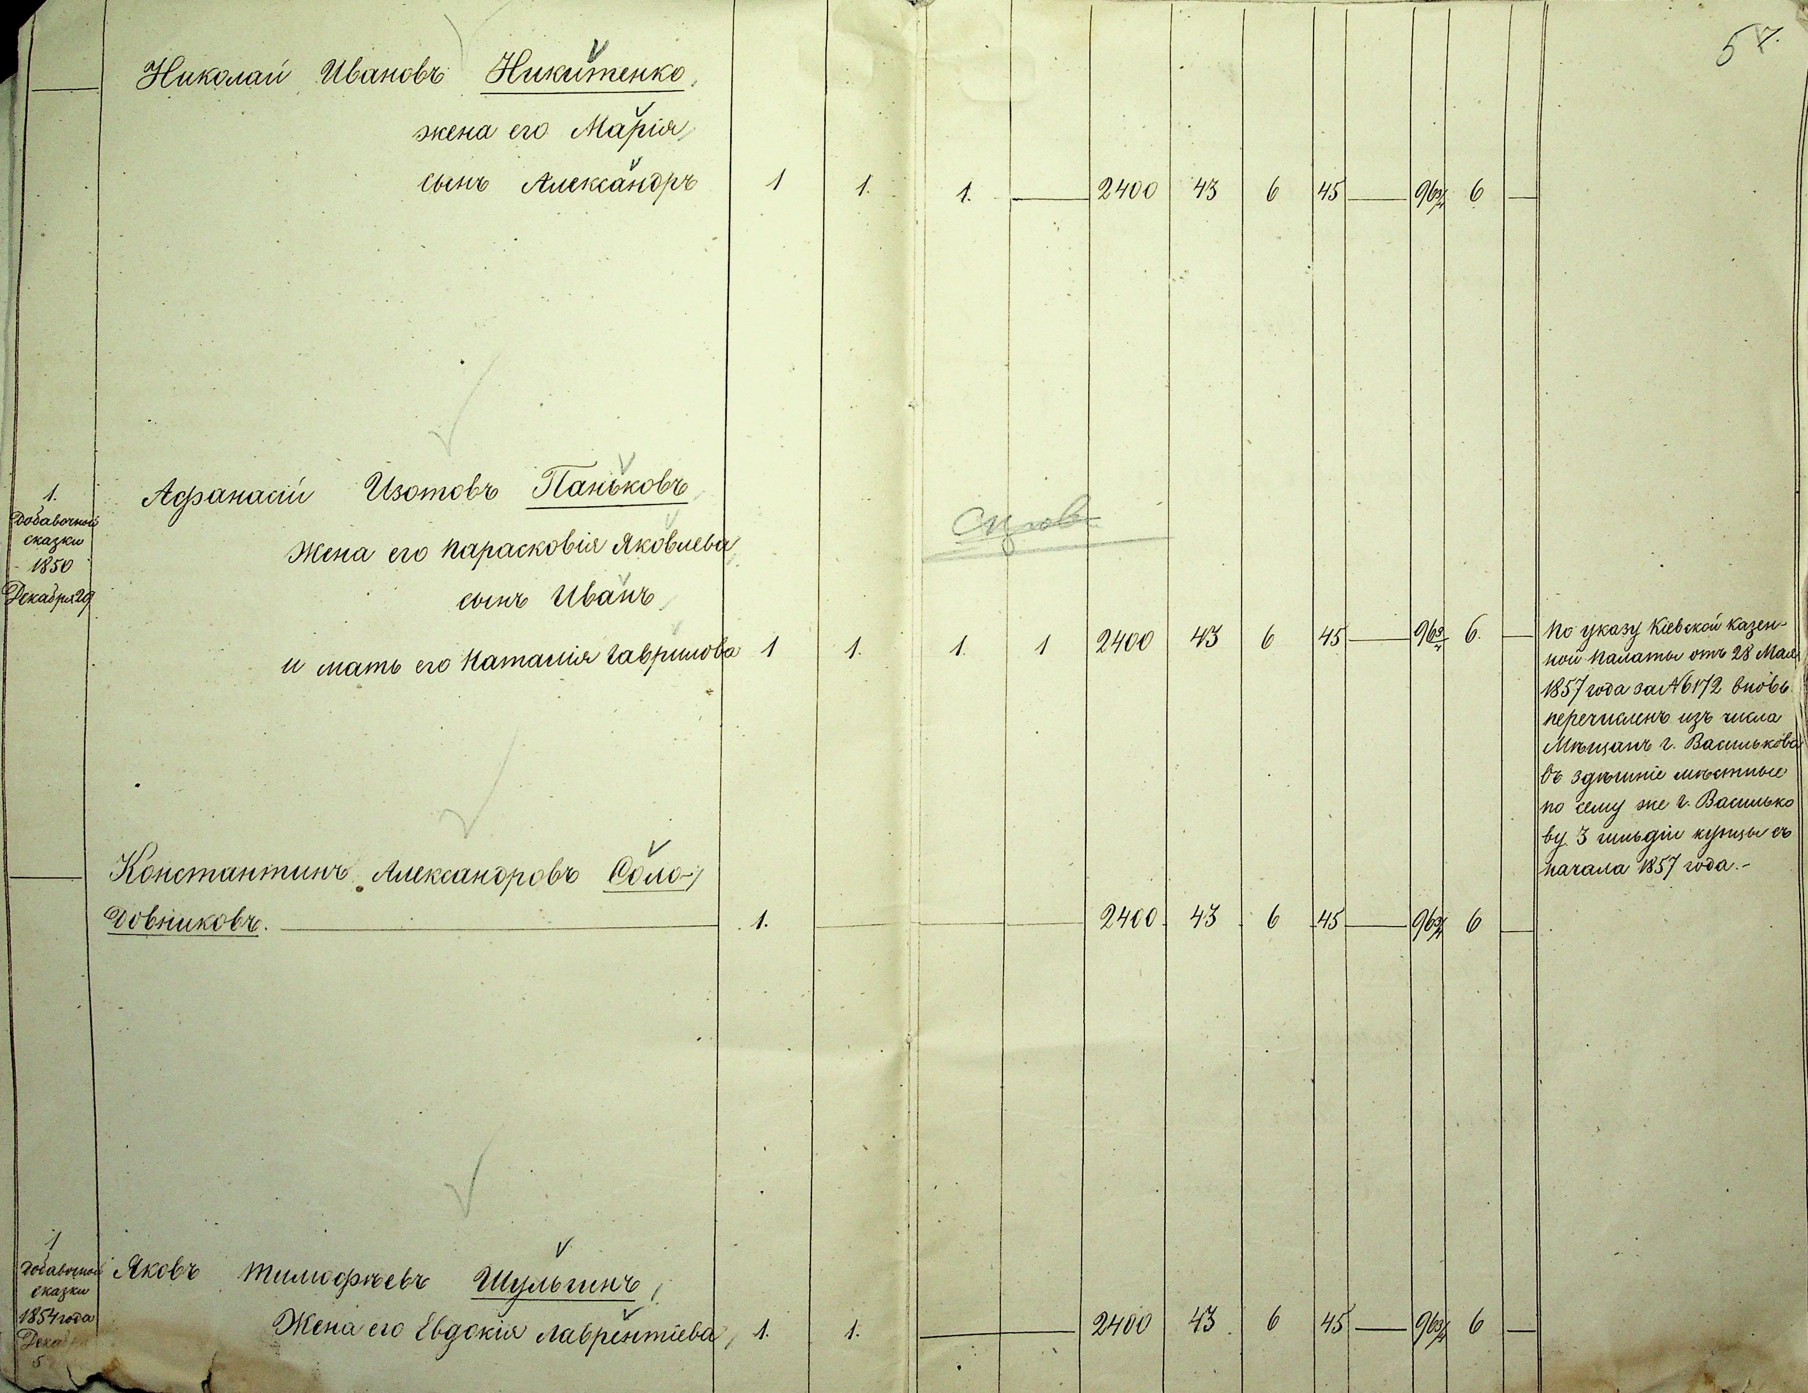 57.
Николай Ивановъ Никитенко,
жена его Марія,
сынъ Александръ 1 1. 1. — 2400 43 6 45 — 96¾ 6 —
1.
добавочной
сказки
1850
Декабря 29
Афанасій Изотовъ Паньковъ,
жена его Парасковія Яковлева,
сынъ Иванъ,
и мать его Наталія Гаврилова 1 1. 1. 1 2400 43 6 45 — 96¾ 6. —
По указу Кіевской казен-
ной палаты отъ 28 Мая
1857 года за № 6172 вновь
перечисленъ изъ числа
Мѣщанъ г. Василькова
въ здѣшніе мѣстные
по сему же г. Василько
ву 3 гильдіи купцы съ
начала 1857 года.-
Константинъ Александровъ Соло-
довниковъ. — 1. — — — 2400 43 6 45 — 96¾ 6 —
1
добавочной
сказки
1854 года
Декабря
5
Яковъ Тимофѣевъ Шульгинъ,
Жена его Евдокія Лаврентіева, 1. 1. — 2400 43 6 45 — 96¾ 6 —